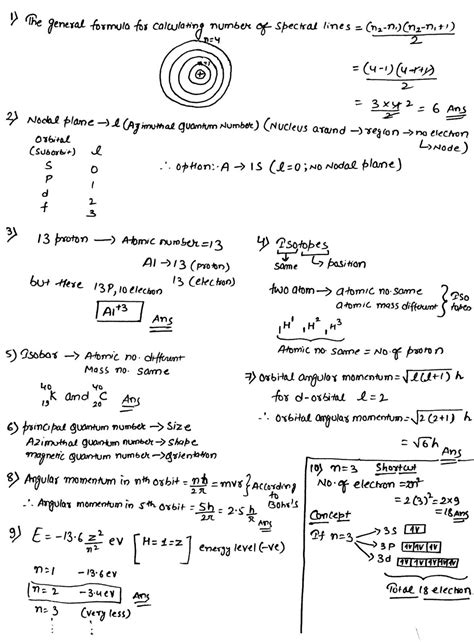 1) The general formula for calculating number of spectral lines = (n₂-n₁)(n₂-n₁+1)/2
n=4
n=1
= (4-1)(4-1+1)/2
= 3×4/2 2 = 6 Ans
2) Nodal plane → l (Azimuthal Quantum Number) (Nucleus around → region → no electron
↳ Node)
Orbital
(Suborbit) l
S 0
P 1
d 2
f 3
∴ option:- A → 1S (l=0; No Nodal plane)
3) 13 proton → Atomic number = 13
Al → 13 (proton)
13 (electron)
but Here 13P, 10 electron
Al⁺³ Ans
4) Isotopes
same ↳ position
two atom → atomic no. same
atomic mass different } Isotopes
₁H¹ ₁H² ₁H³
Atomic no same = No. of proton
5) Isobar → Atomic no. different
Mass no. same
⁴⁰₁₉K and ⁴⁰₂₀C Ans
6) principal Quantum number → Size
Azimuthal Quantum number → Shape
magnetic Quantum number → Orientation
7) orbital angular momentum = √l(l+1) ħ
for d-orbital l = 2
∴ orbital angular momentum = √2(2+1) ħ
= √6 ħ
Ans
8) Angular momentum in nth orbit = nh/2π = mvr } According to Bohr's
∴ Angular momentum in 5th orbit = 5h/2π = 2.5 h/π Ans
9) E = -13.6 z²/n² eV [H=1=z] energy level (-ve)
n=1 -13.6 eV
n=2 -3.4 eV Ans
n=3 (very less)
10) n=3 Shortcut
No. of electron = 2n²
= 2(3)² = 2×9
= 18 Ans
Concept
If n=3 → 3S 1V
→ 3P 1V 1V 1V
→ 3d 1V 1V 1V 1V 1V
Total 18 electron